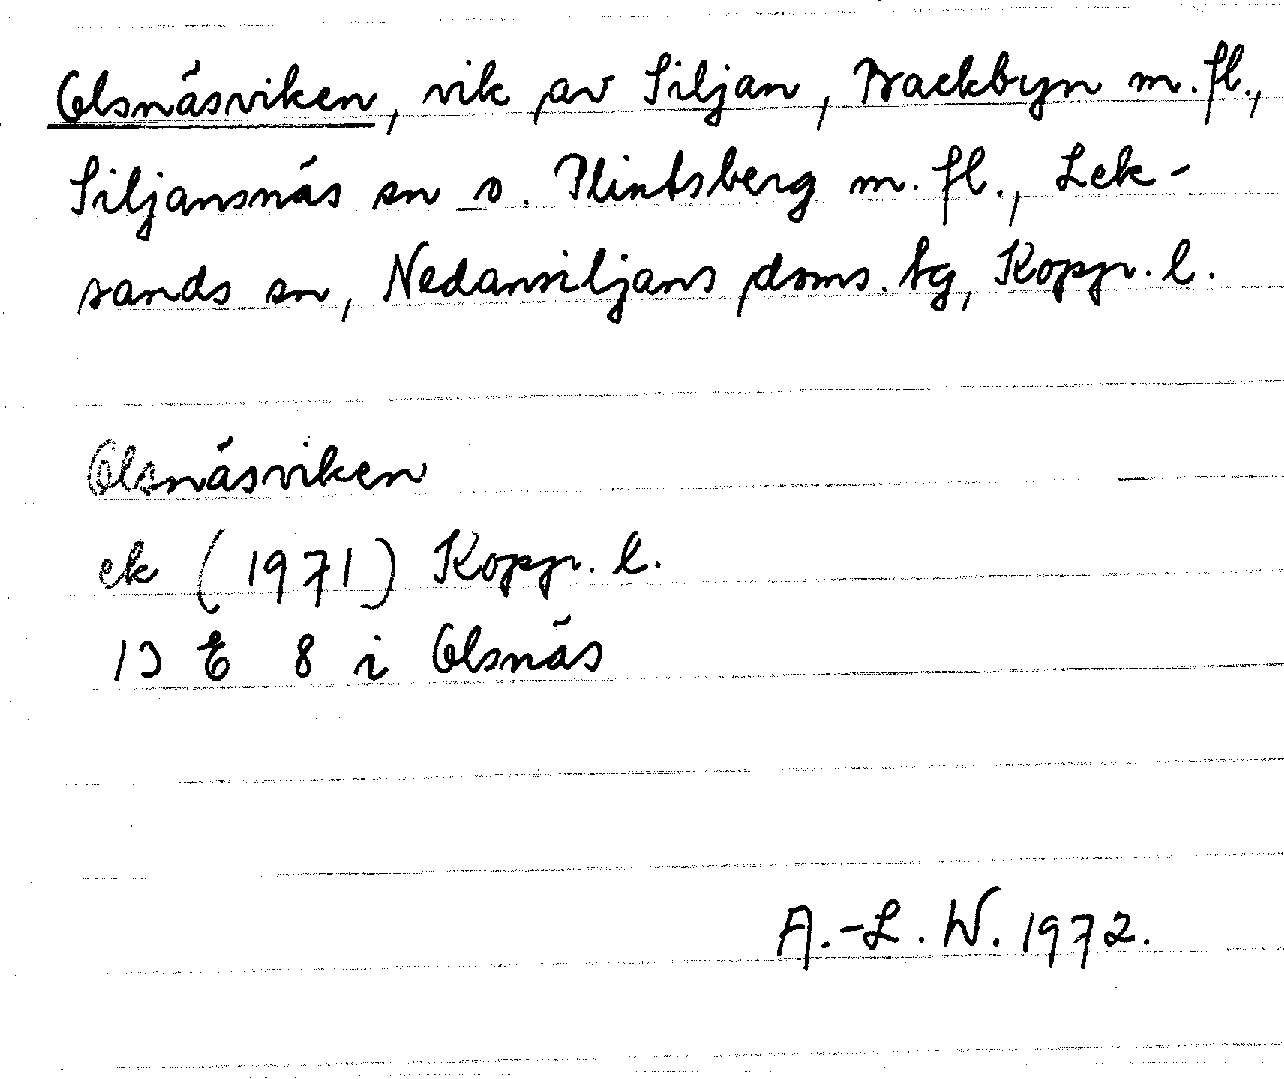 Olsnäsviken, vik av Siljan, Backbyn m. fl.,
Siljansnäs sn o. Plintsberg m. fl., Lek-
sands sn, Nedansiljans doms. tg, Kopp. l.
Olsnäsviken
ek (1971) Kopp. l.
13 E 8 i Olsnäs
A.-L. W. 1972.